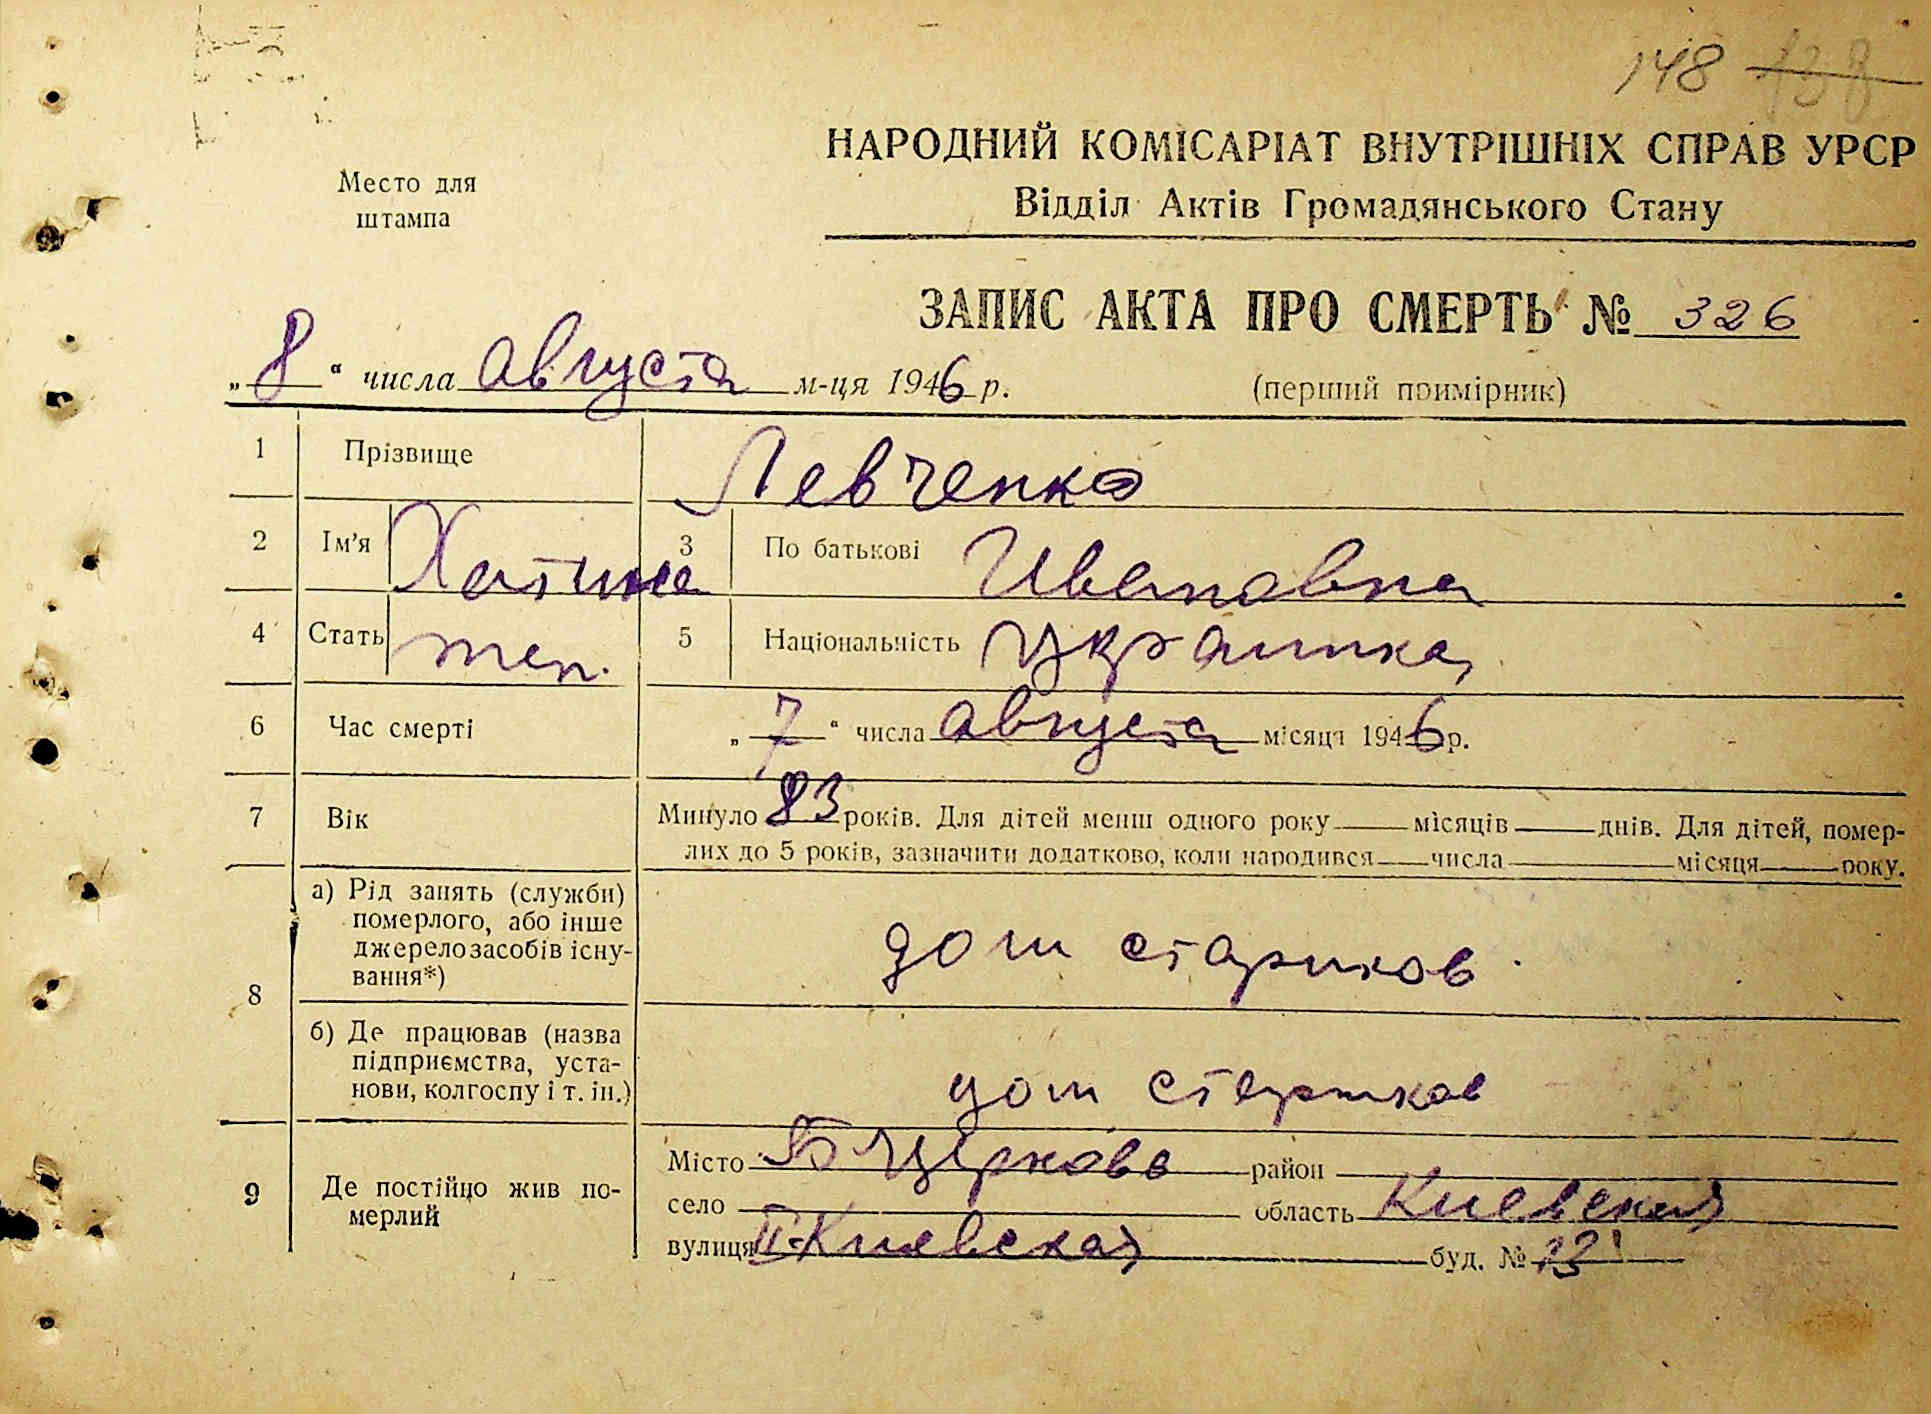 148 138
НАРОДНИЙ КОМІСАРІАТ ВНУТРІШНІХ СПРАВ УРСР
Место для
штампа
Відділ Актів Громадянського Стану
ЗАПИС АКТА ПРО СМЕРТЬ № 326
„8“ числа августа м-ця 1946 р.
(перший примірник)
1 Прізвище Левченко
2 Ім'я Хотина 3 По батькові Ивановна
4 Стать жен. 5 Національність украинка
6 Час смерті „7“ числа августа місяця 1946 р.
7 Вік Минуло 83 років. Для дітей менш одного року місяців днів. Для дітей, помер-
лих до 5 років, зазначити додатково, коли народився числа місяця року.
8 а) Рід занять (служби)
померлого, або інше
джерело засобів існу-
вання*)
дом стариков
б) Де працював (назва
підприємства, уста-
нови, колгоспу і т. ін.)
дом стариков
9 Де постійно жив по-
мерлий
Місто Б Церковь район
село область Киевская
вулиця II-Киевская буд. №